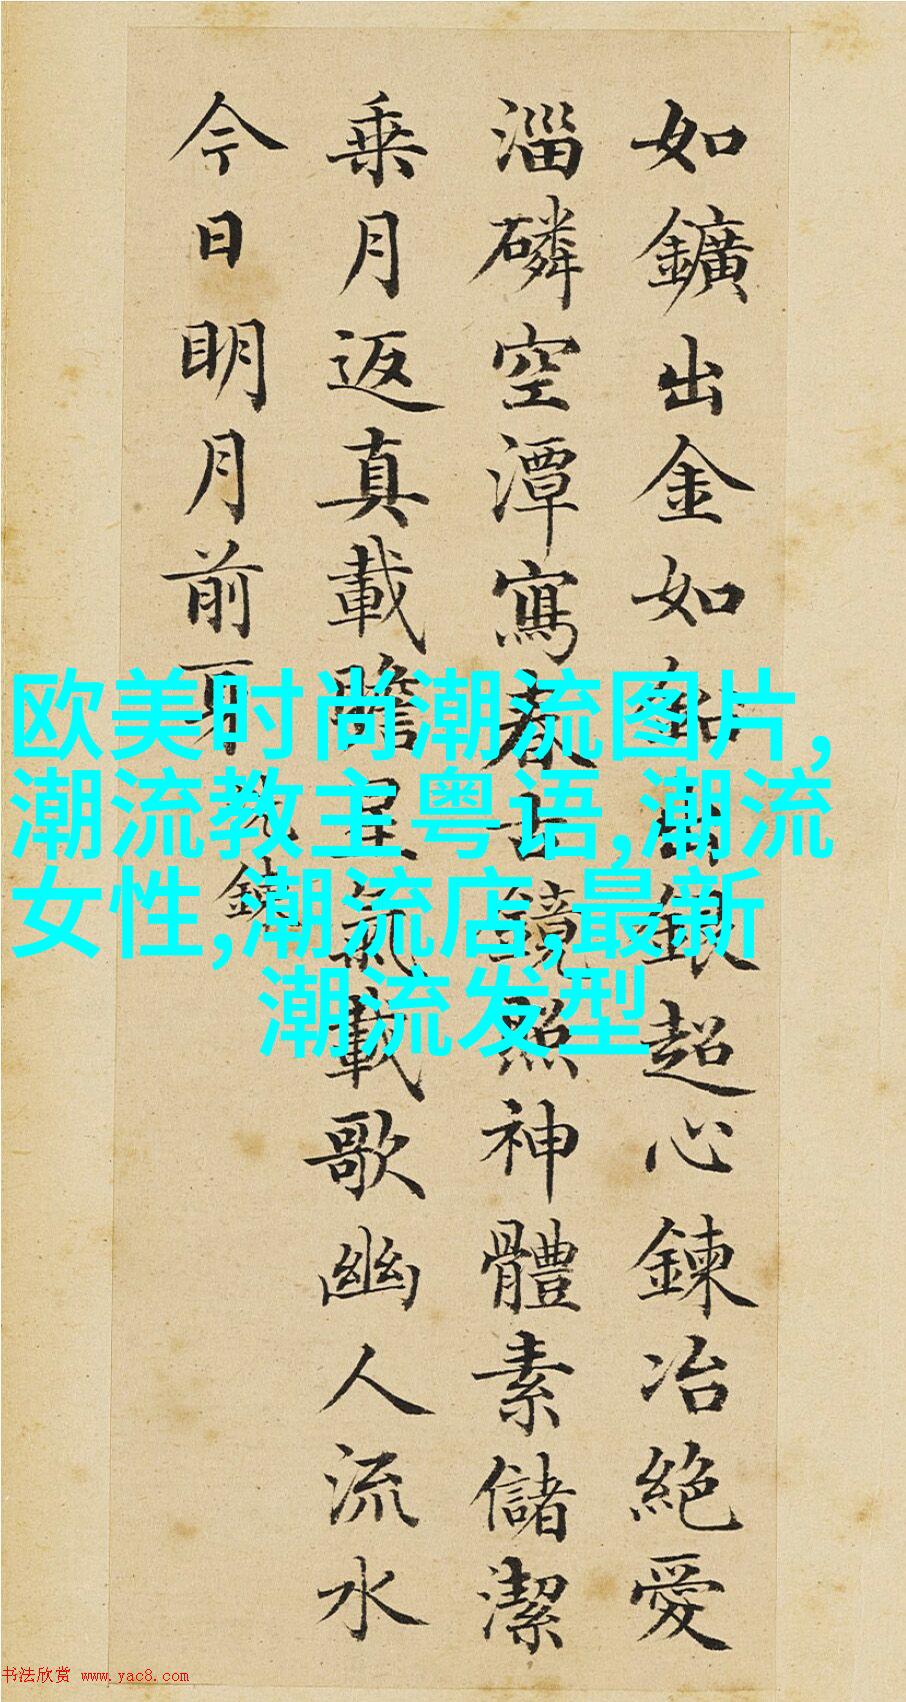 如鑛出金如鉛出銀超心鍊冶絕愛
淄磷空潭寫春古鏡照神體素儲潔
乘月返真載瞻星氣載歌幽人流水
今日明月前身
洗鍊
欧美时尚潮流图片,
潮流教主粤语,潮流
女性,潮流店,最新
潮流发型
书法欣赏 www.yac8.com